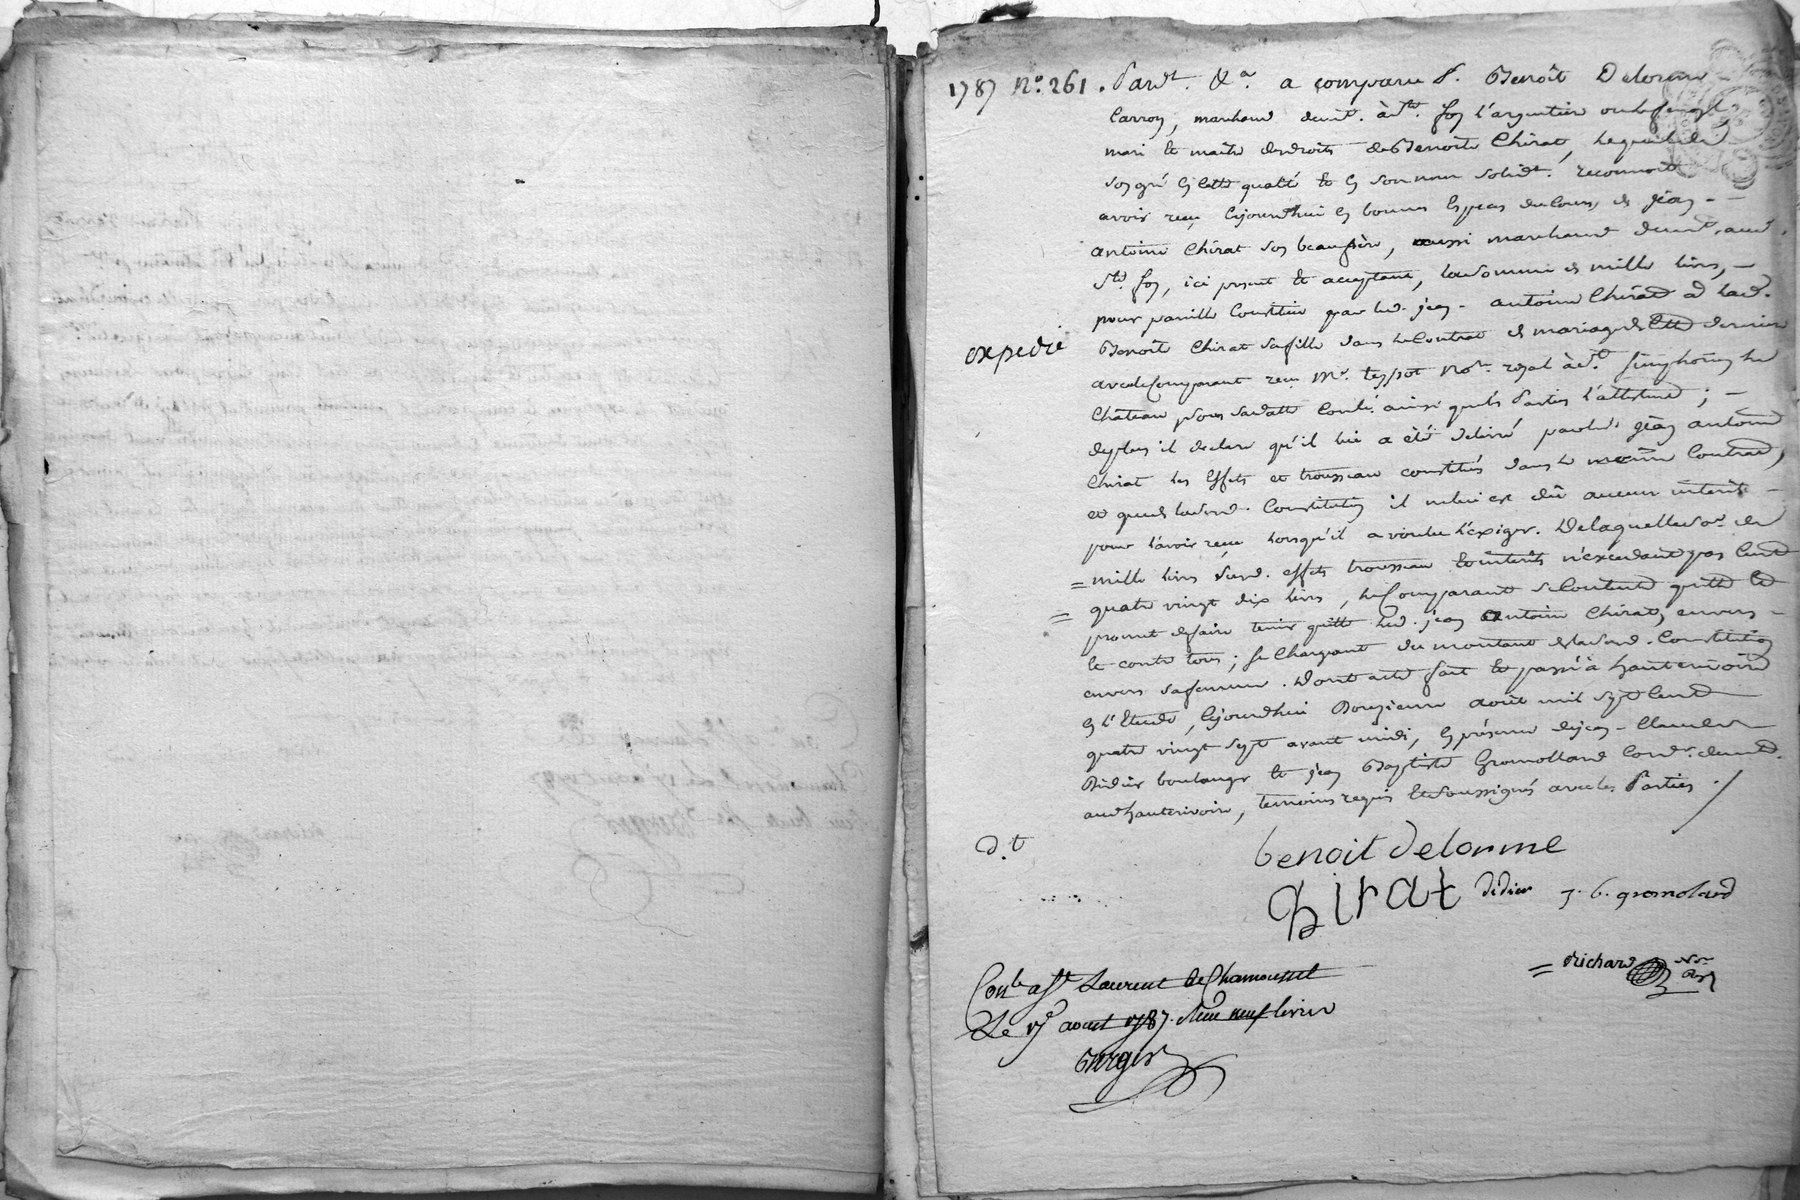 1787 N.º 261. Pardt. &a. a comparu S. Benoît Delorme
Carron, marchand demt. à Ste. foy l'argentier
mari et maître des droits de Benoite Chirat, lequel de
son gré en cette qualité et en son nom solidt. reconnoit
avoir reçu cejourd'hui en bonnes especes du cours, de jean -
antoine Chirat son beaupère, aussi marchand demt. aud.
Ste. foy, ici present et acceptant, la somme de mille livres, -
pour pareille Constituée par led. jean - antoine Chirat à lad.
expedié
Benoîte Chirat sa fille dans le Contrat de mariage de cette derniere
avec le Comparant reçu Me. teyssot Not. royal à St. simphorien le
Château sous sa datte Conlé. ainsi que les Parties l'attestent ; -
de plus il declare qu'il lui a été delivré par led. jean antoine
Chirat les Effets et trousseau constitués dans le même Contrat,
et que de lad. Constitution il ne lui est dû aucun intérêt -
pour l'avoir reçu lorsqu'il a voulu l'exiger. De laquelle so.e de
= mille livres susd. effets trousseau et intérêts n'excedant pas Cent
= quatre vingt dix livres, le Comparant se Contente quitte et
promet de faire tenir quitte led. jean antoine Chirat, envers -
et contre tous ; se Chargeant du montant de lad. Constitution
envers sa femme. Dont acte fait et passé à hauterivoire
en l'Etude, cejourd'hui Douzieme août mil sept cent
quatre vingt sept avant midi, en présence de jean - Claude
Didier boulanger et jean Baptiste Gromolland Cord.r demt.
aud. hauterivoire, temoins requis et soussignés avec les Parties ./
d.t
benoit delorme
Chirat didier j. b. gromolard
= Richard Nore Roy
Conle. a St. Laurent de Chamousset
Le 17 aoust 1787. Reçu neuf livres